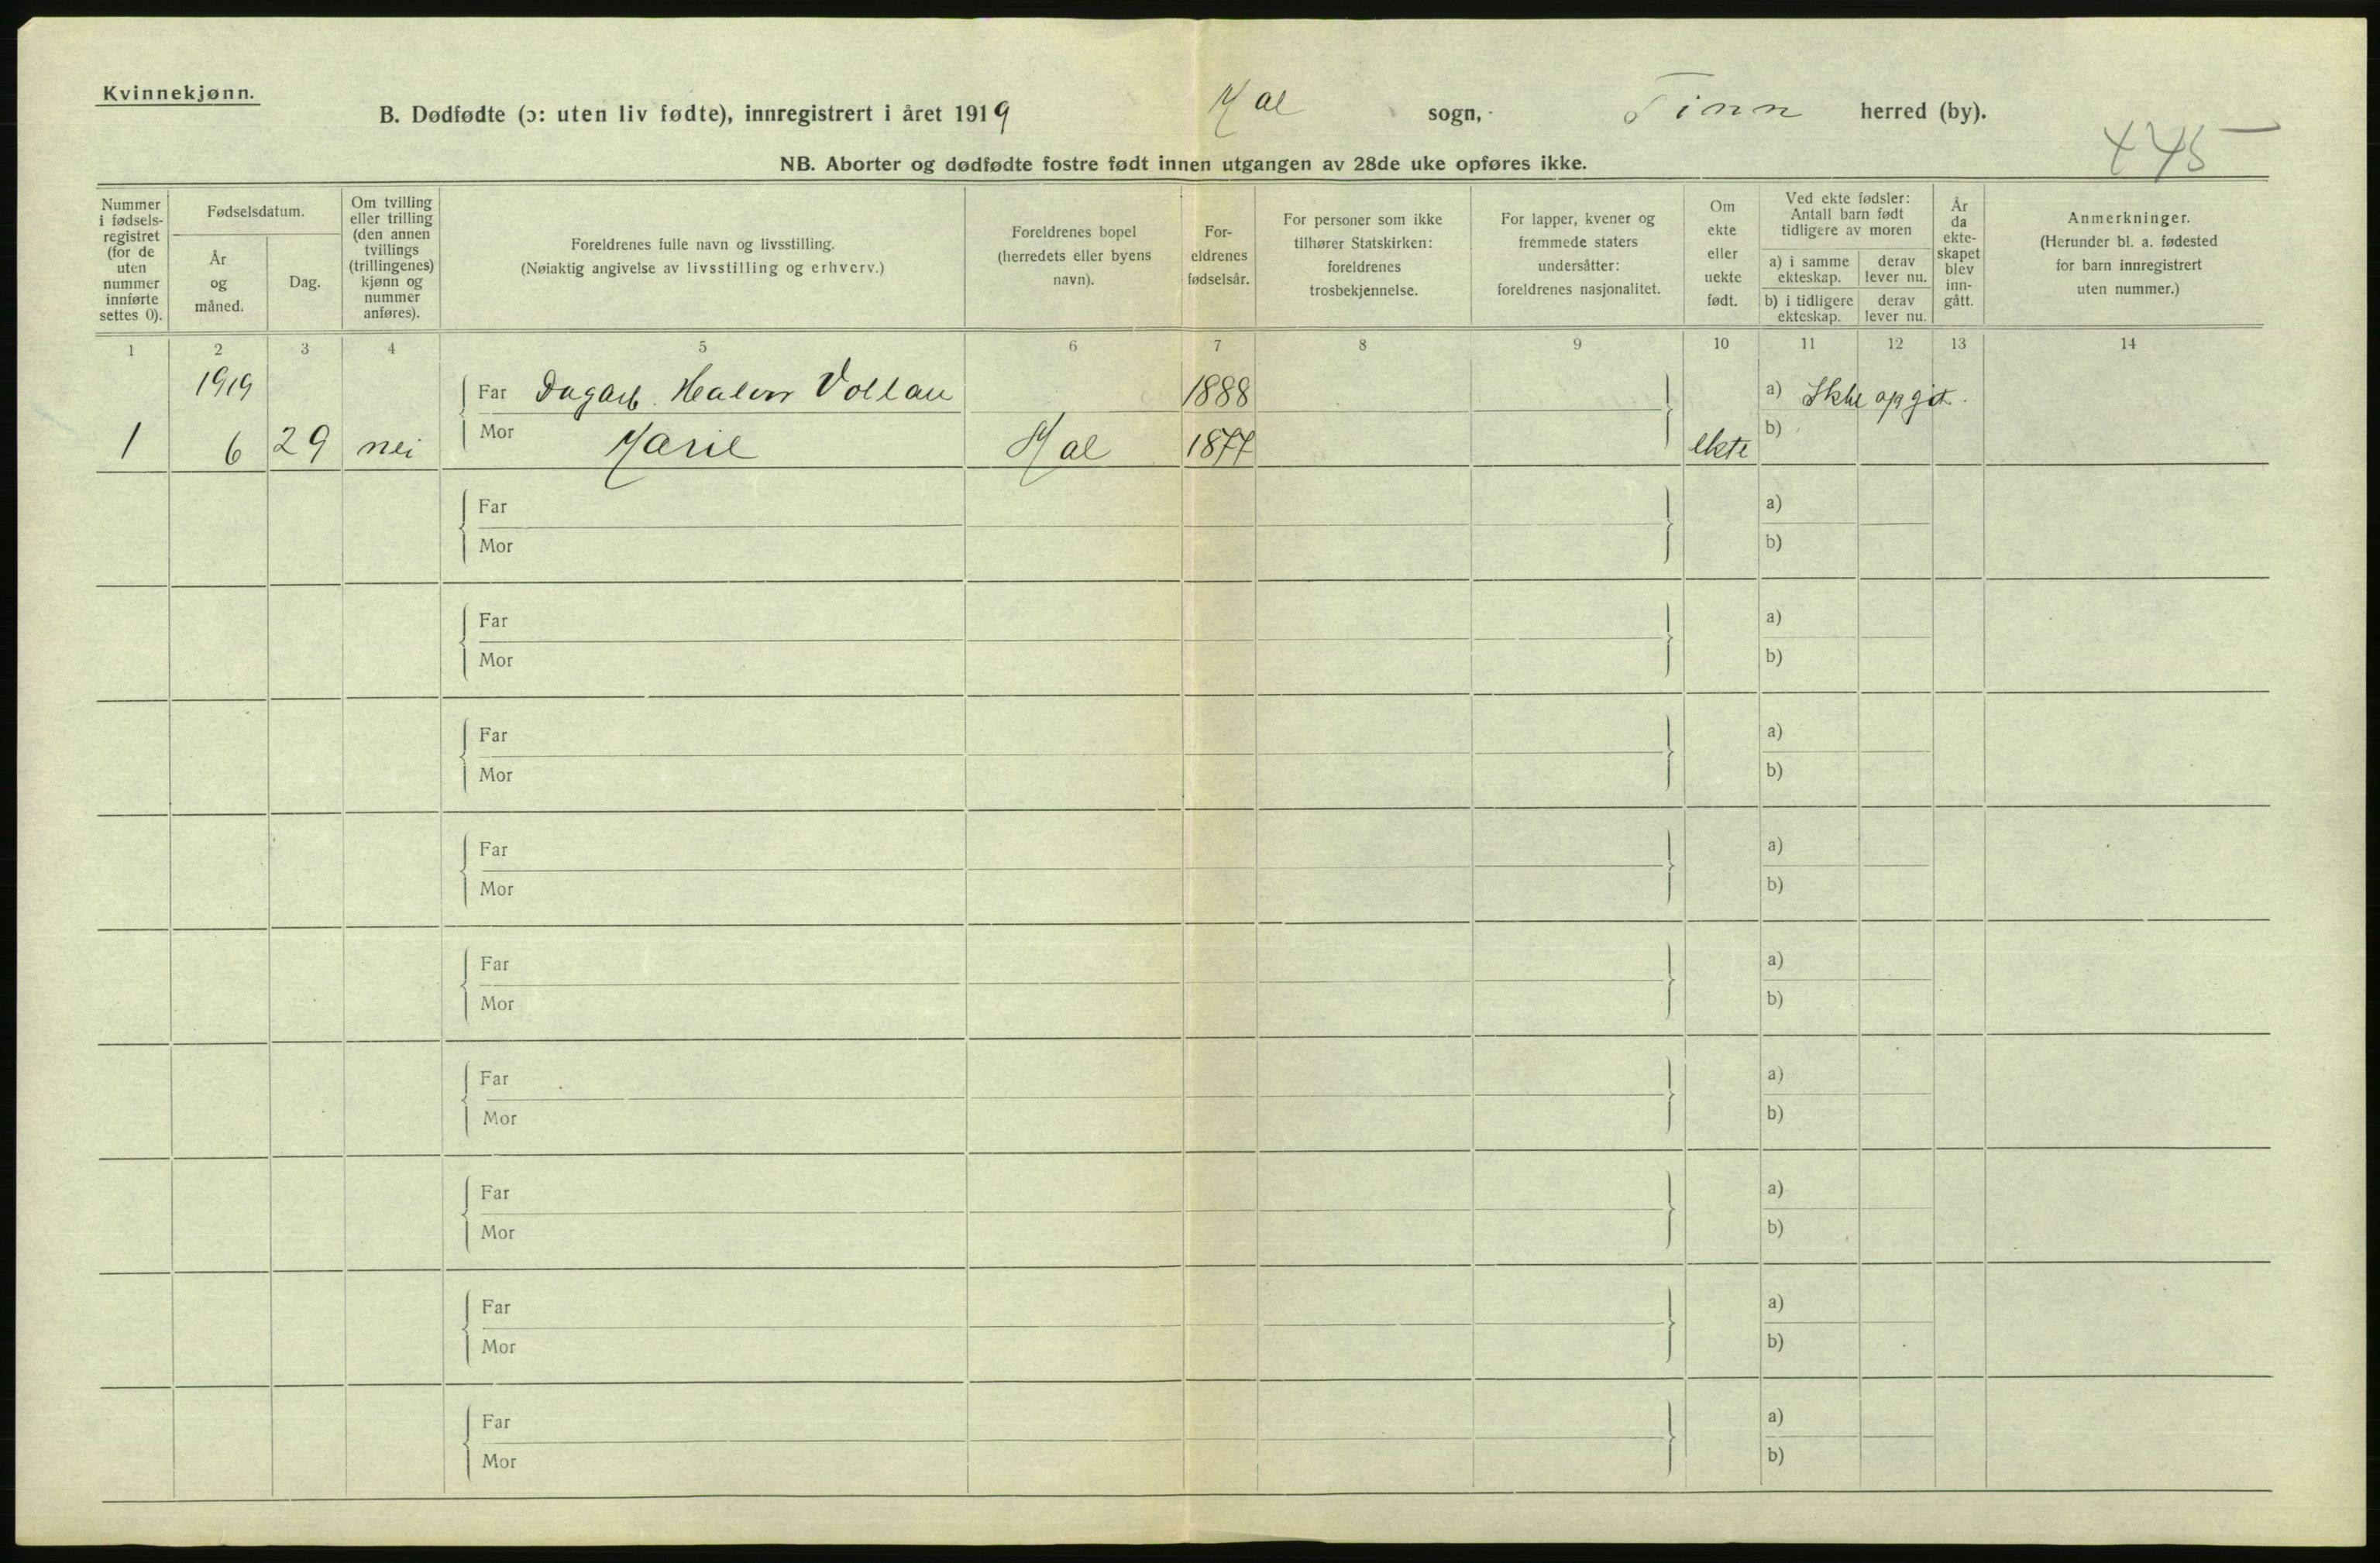 Kvinnekjønn.
B. Dødfødte (ɔ: uten liv fødte), innregistrert i året 1919 Mæl sogn, Tinn herred (by).
445
NB. Aborter og dødfødte fostre født innen utgangen av 28de uke opføres ikke.
Nummer i fødsels-registret (for de uten nummer innførte settes 0).
Fødselsdatum.
År og måned.
Dag.
Om tvilling eller trilling (den annen tvillings (trillingenes) kjønn og nummer anføres).
Foreldrenes fulle navn og livsstilling.
(Nøiaktig angivelse av livsstilling og erhverv.)
Foreldrenes bopel (herredets eller byens navn).
For-eldrenes fødselsår.
For personer som ikke tilhører Statskirken: foreldrenes trosbekjennelse.
For lapper, kvener og fremmede staters undersåtter: foreldrenes nasjonalitet.
Om ekte eller uekte født.
Ved ekte fødsler: Antall barn født tidligere av moren
a) i samme ekteskap.
derav lever nu.
b) i tidligere ekteskap.
derav lever nu.
År da ekte-skapet blev inn-gått.
Anmerkninger.
(Herunder bl. a. fødested for barn innregistrert uten nummer.)
1 2 3 4 5 6 7 8 9 10 11 12 13 14
1919 Far Dagarb. Halvor Vollan 1888 a) Ikke opgit.
1 6 29 nei Mor Marie Mæl 1877 ekte b)
Far a)
Mor b)
Far a)
Mor b)
Far a)
Mor b)
Far a)
Mor b)
Far a)
Mor b)
Far a)
Mor b)
Far a)
Mor b)
Far a)
Mor b)
Far a)
Mor b)